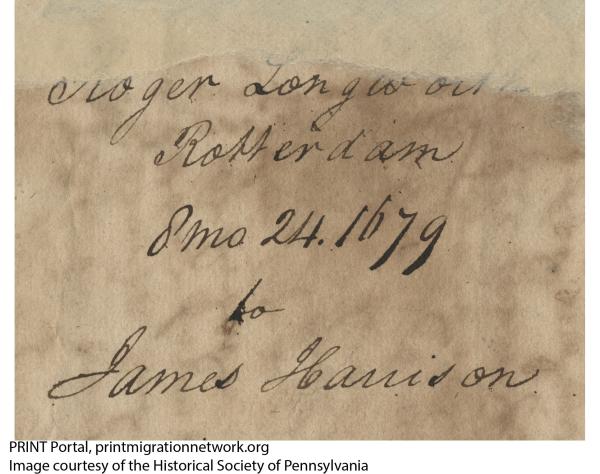 Roger Longworth
Rotterdam
8mo 24. 1679
to
James Harrison
PRINT Portal, printmigrationnetwork.org
Image courtesy of the Historical Society of Pennsylvania